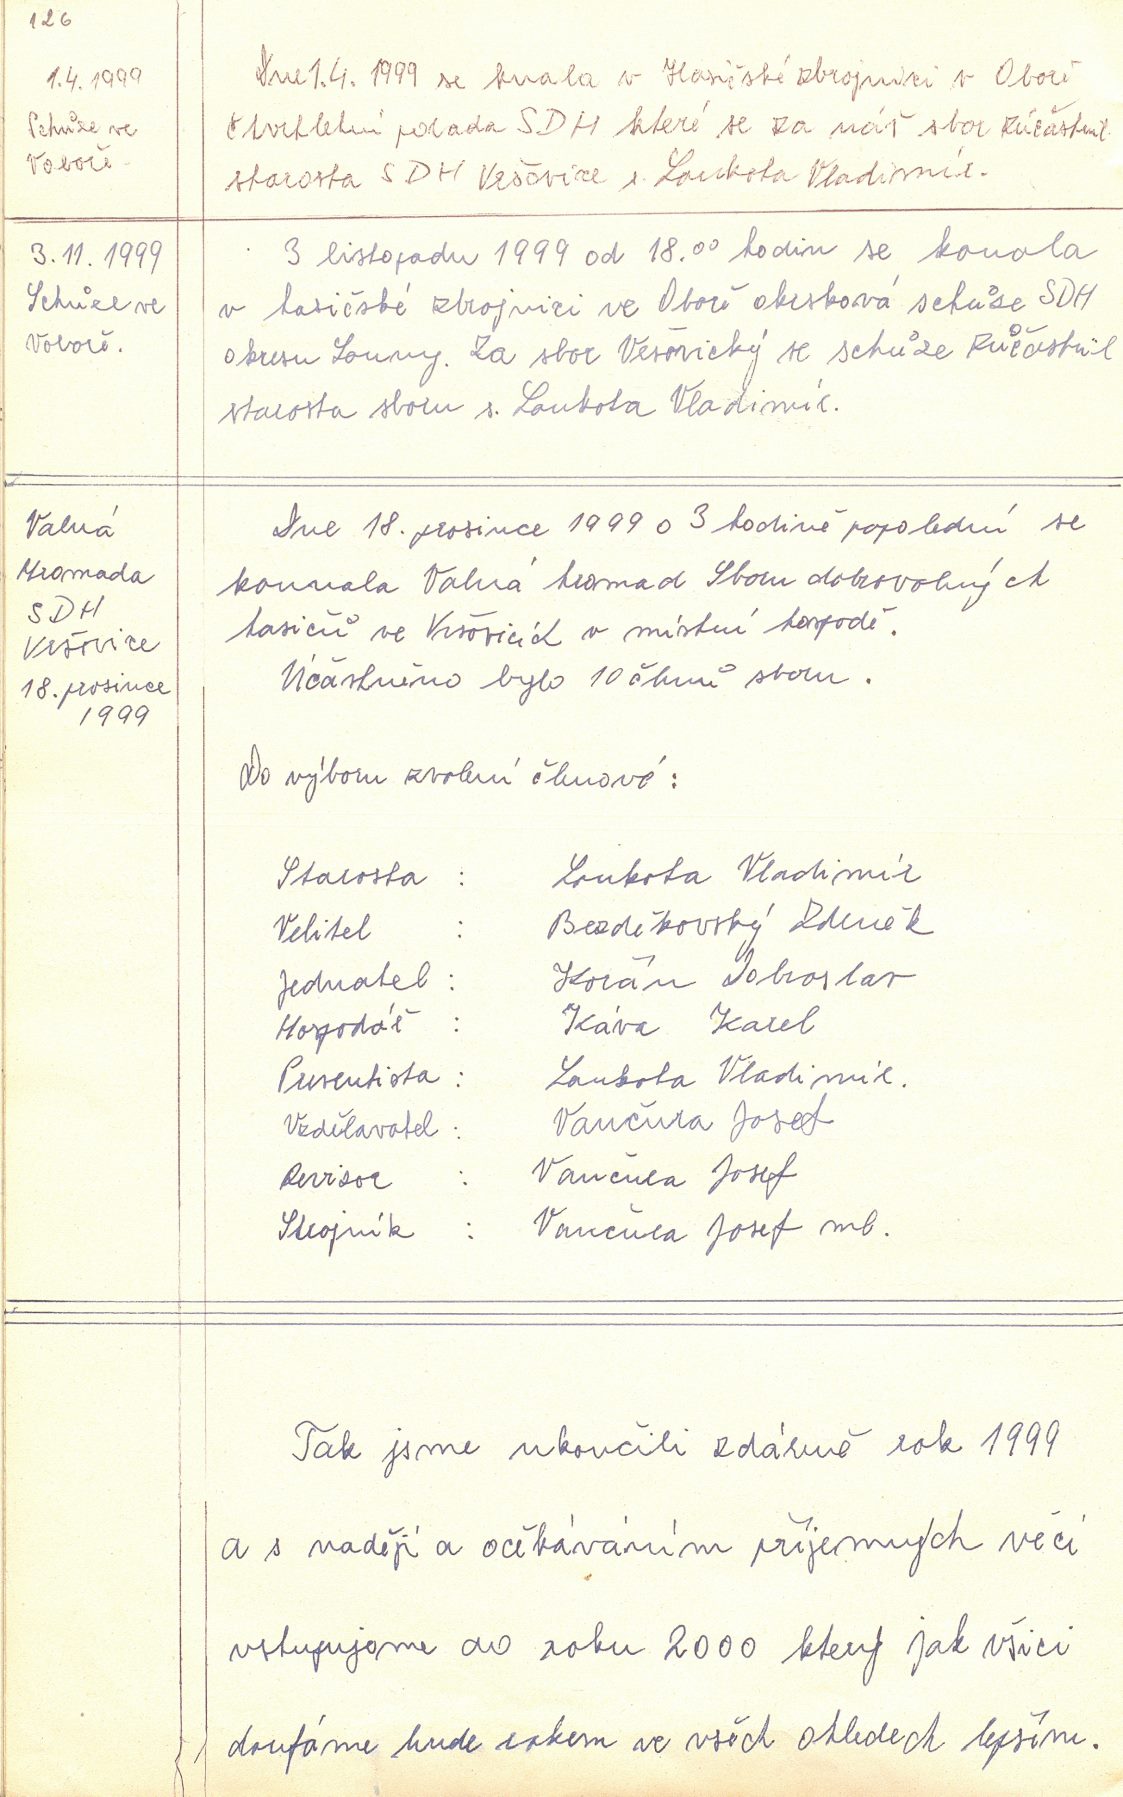 126
1.4. 1999
Schůze ve
Voboře.
Dne 1.4. 1999 se konala v Hasičské zbrojnici v Oboře
čtvrtletní porada SDH které se za náš sbor zúčastnil
starosta SDH Vršovice s. Loukota Vladimír.
3. 11. 1999
Schůze ve
Voboře.
3 listopadu 1999 od 18.00 hodin se konala
v hasičské zbrojnici ve Oboře okrsková schůze SDH
okresu Louny. Za sbor Vršovický se schůze zůčastnil
starosta sboru s. Loukota Vladimír.
Valná
Hromada
SDH
Vršovice
18. prosince
1999
Dne 18. prosince 1999 o 3 hodině popolední se
konnala Valná hromad Sboru dobrovolných
hasičů ve Vršovicích v místní hospodě.
Účastněno bylo 10 členů sboru.
Do výboru zvolení členové:
Starosta : Loukota Vladimír
Velitel : Bezděkovský Zdeněk
Jednatel : Korán Dobroslav
Hospodář : Káva Karel
Presentista : Loukota Vladimír.
Vzdělavatel : Vančura Josef
Revizor : Vančura Josef
Strojník : Vančura Josef ml.
Tak jsme ukončili zdárně rok 1999
a s nadějí a očekáváním příjemných věcí
vstupujeme do roku 2000 který jak všici
doufáme bude rokem ve všech ohledech lepším.